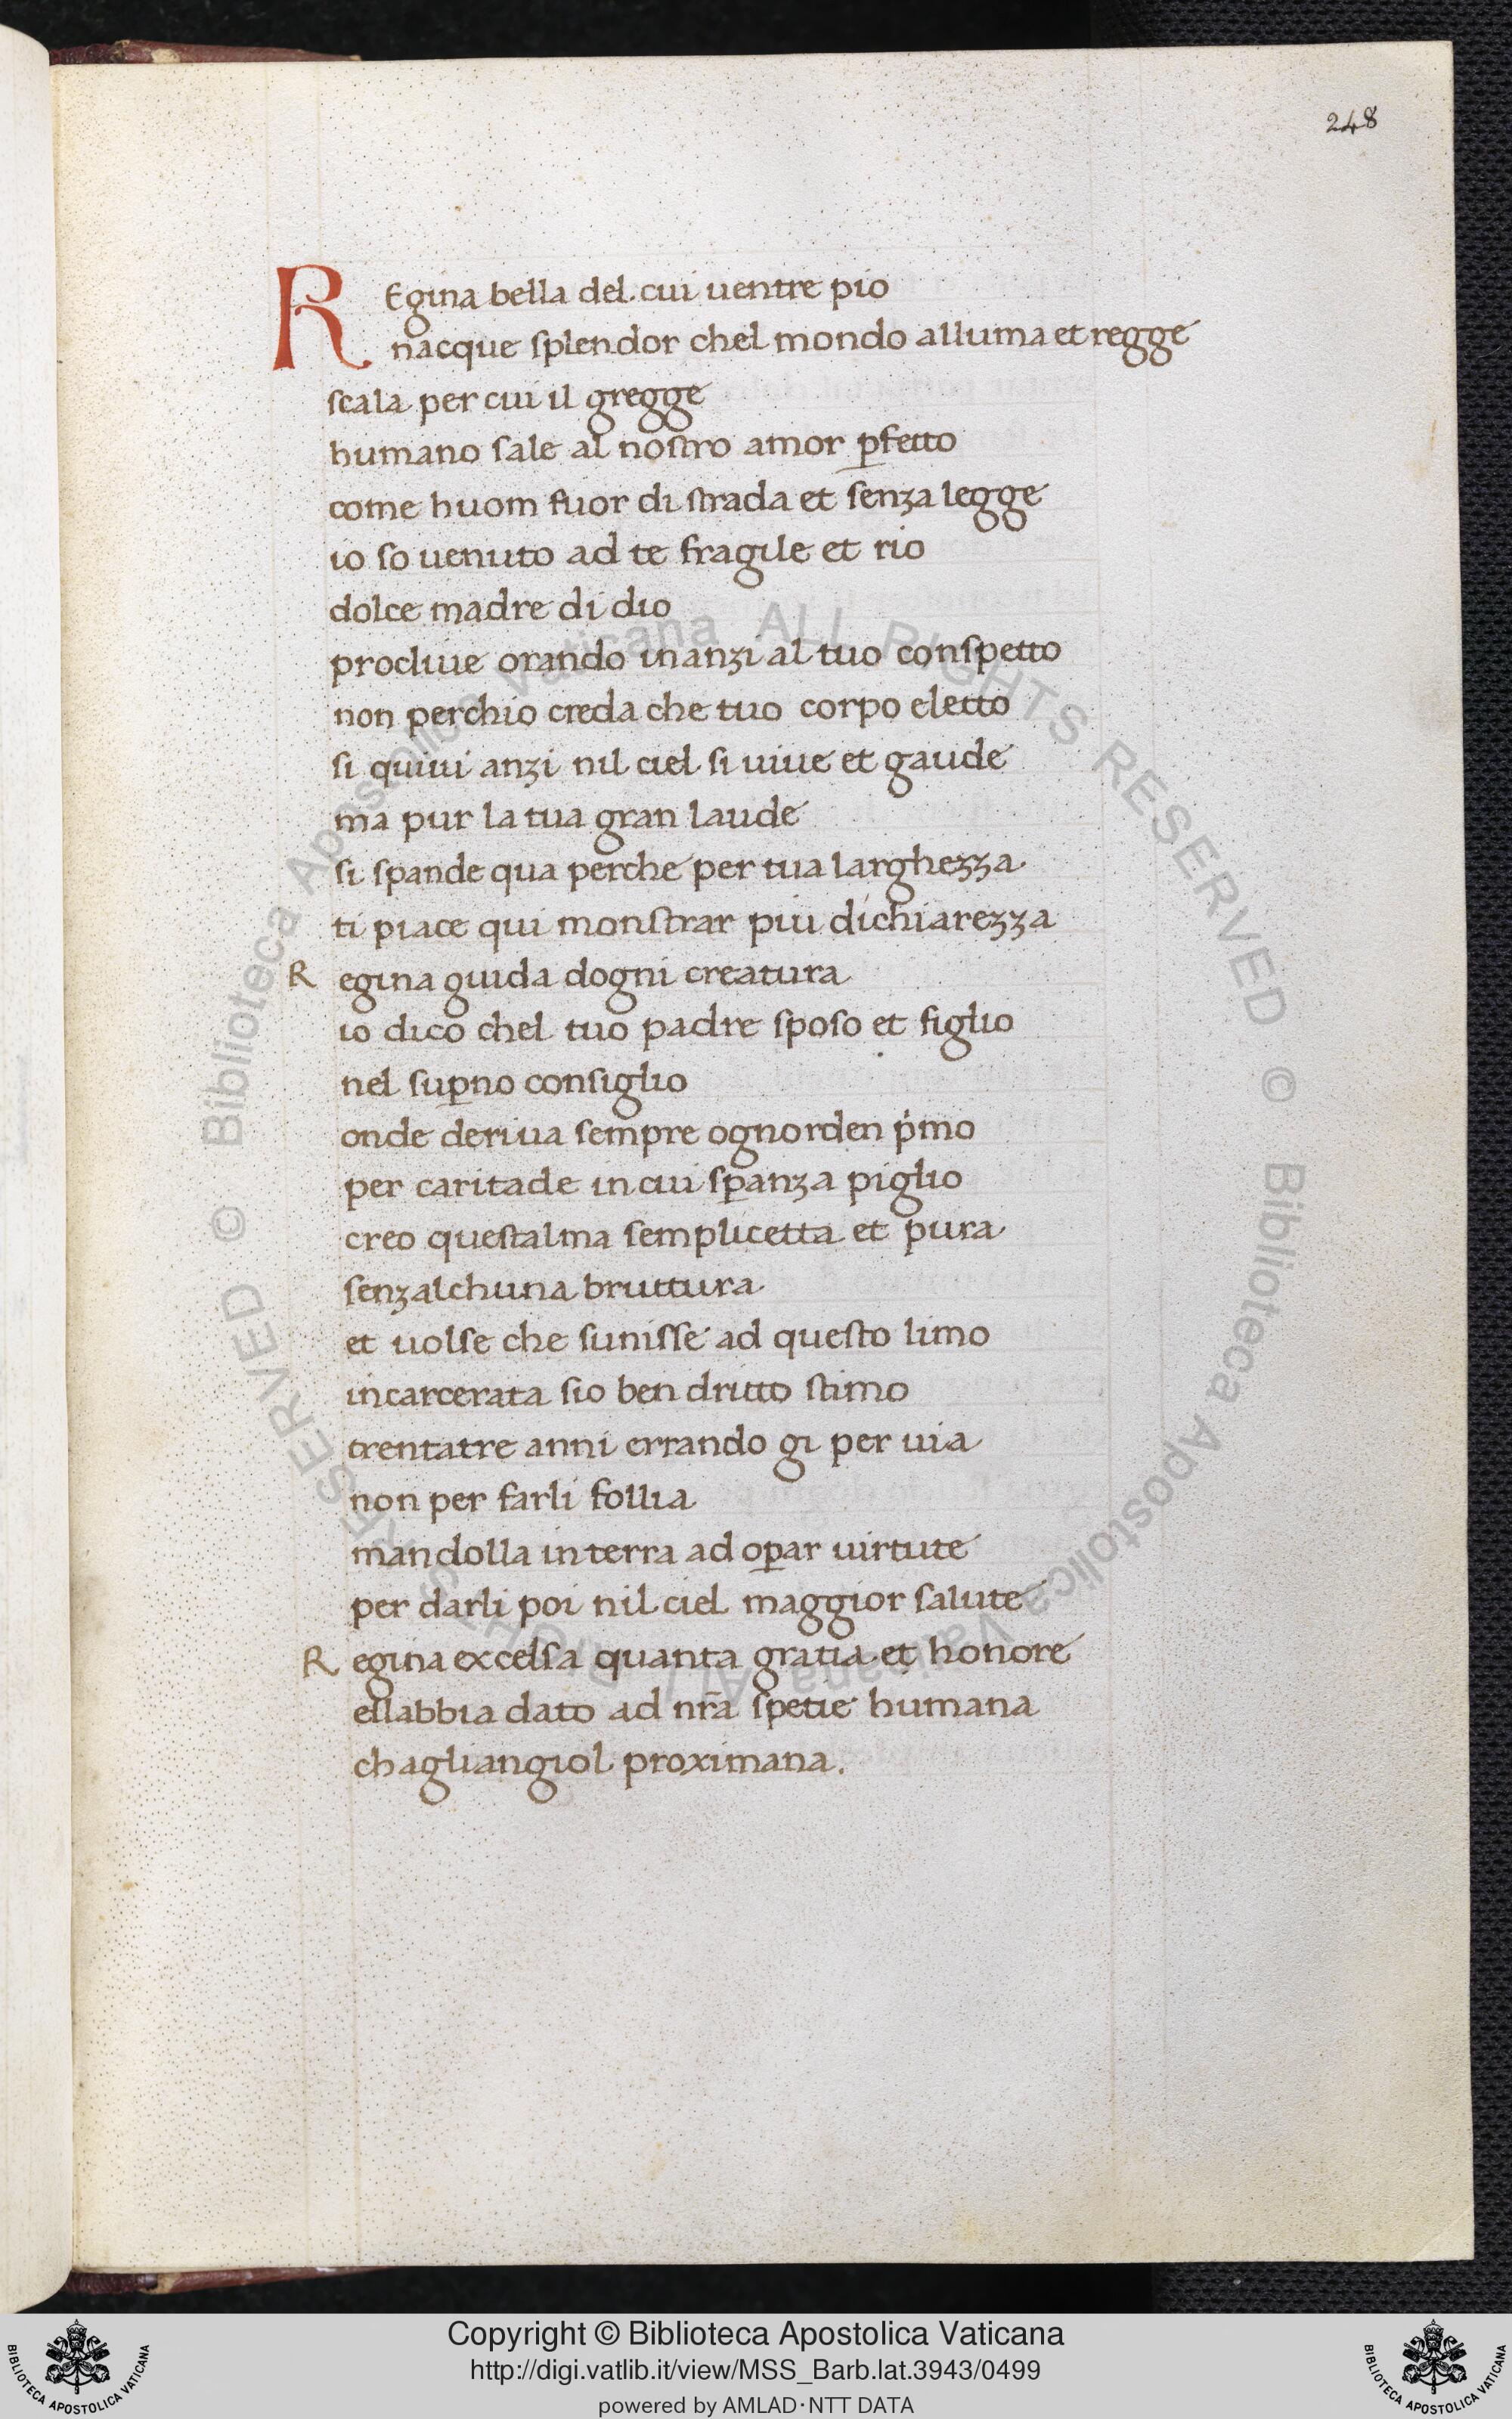 248
REgina bella del cui uentre pio
nacque splendor chel mondo alluma et regge
scala per cui il gregge
humano sale al nostro amor ꝑfetto
come huom fuor di strada et senza legge
io so uenuto ad te fragile et rio
dolce madre di dio
procliue orando inanzi al tuo conspetto
non perchio creda che tuo corpo eletto
si quiui anzi nil ciel si uiue et gaude
ma pur la tua gran laude
si spande qua perche per tua larghezza
ti piace qui monstrar piu di chiarezza
Regina guida dogni creatura
io dico chel tuo padre sposo et figlio
nel suꝑno consiglio
onde deriua sempre ognorden pͥmo
per caritade in cui sꝑanza piglio
creo questalma semplicetta et pura
senzalchuna bruttura
et uolse che sunisse ad questo limo
incarcerata sio ben dritto stimo
trentatre anni errando gi per uia
non per farli follia
mandolla in terra ad oꝑar uirtute
per darli poi nil ciel maggior salute
Regina excelsa quanta gratia et honore
ellabbia dato ad nr̃a spetie humana
chagliangiol proximana.
Biblioteca Apostolica Vaticana ALL RIGHTS RESERVED ©
Biblioteca Apostolica Vaticana ALL RIGHTS RESERVED ©
Copyright © Biblioteca Apostolica Vaticana
http://digi.vatlib.it/view/MSS_Barb.lat.3943/0499
powered by AMLAD·NTT DATA
BIBLIOTECA APOSTOLICA VATICANA
BIBLIOTECA APOSTOLICA VATICANA